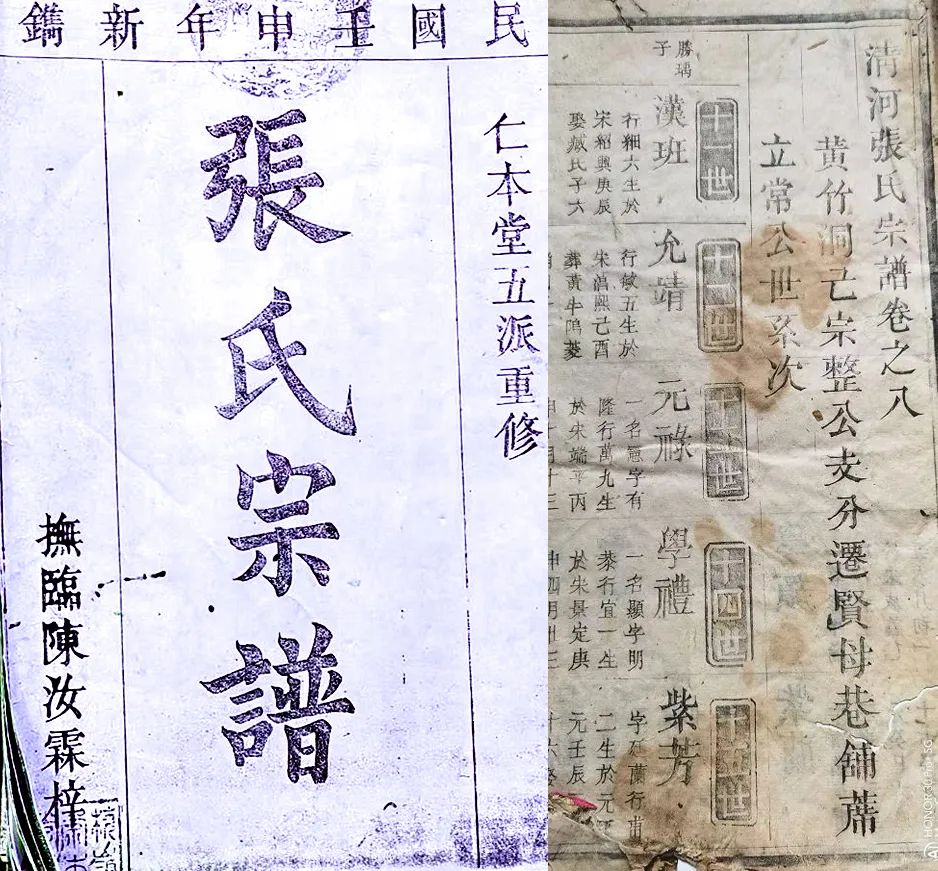 民國壬申年新鐫
仁本堂五派重修
張氏宗譜
撫臨陳汝霖梓
清河張氏宗譜卷之八
黄竹洞亡宗整公支分遷賢母巷舖蓆
立常公世系次
十一世
十二世
十三世
十四世
十五世
勝瑀
子
漢班
行細六生於
宋紹興庚辰
娶臧氏子六
允靖
行敏五生於
宋淳熙己酉
葬黄牛鳴菱
元祿
一名冠字有
隆行萬九生
於宋端平丙
學禮
一名顯字明
泰行宜一生
於宋景定庚
紫芳
字廷蘭行甫
二生於元
元壬辰
HONOR 30 Pro 5G